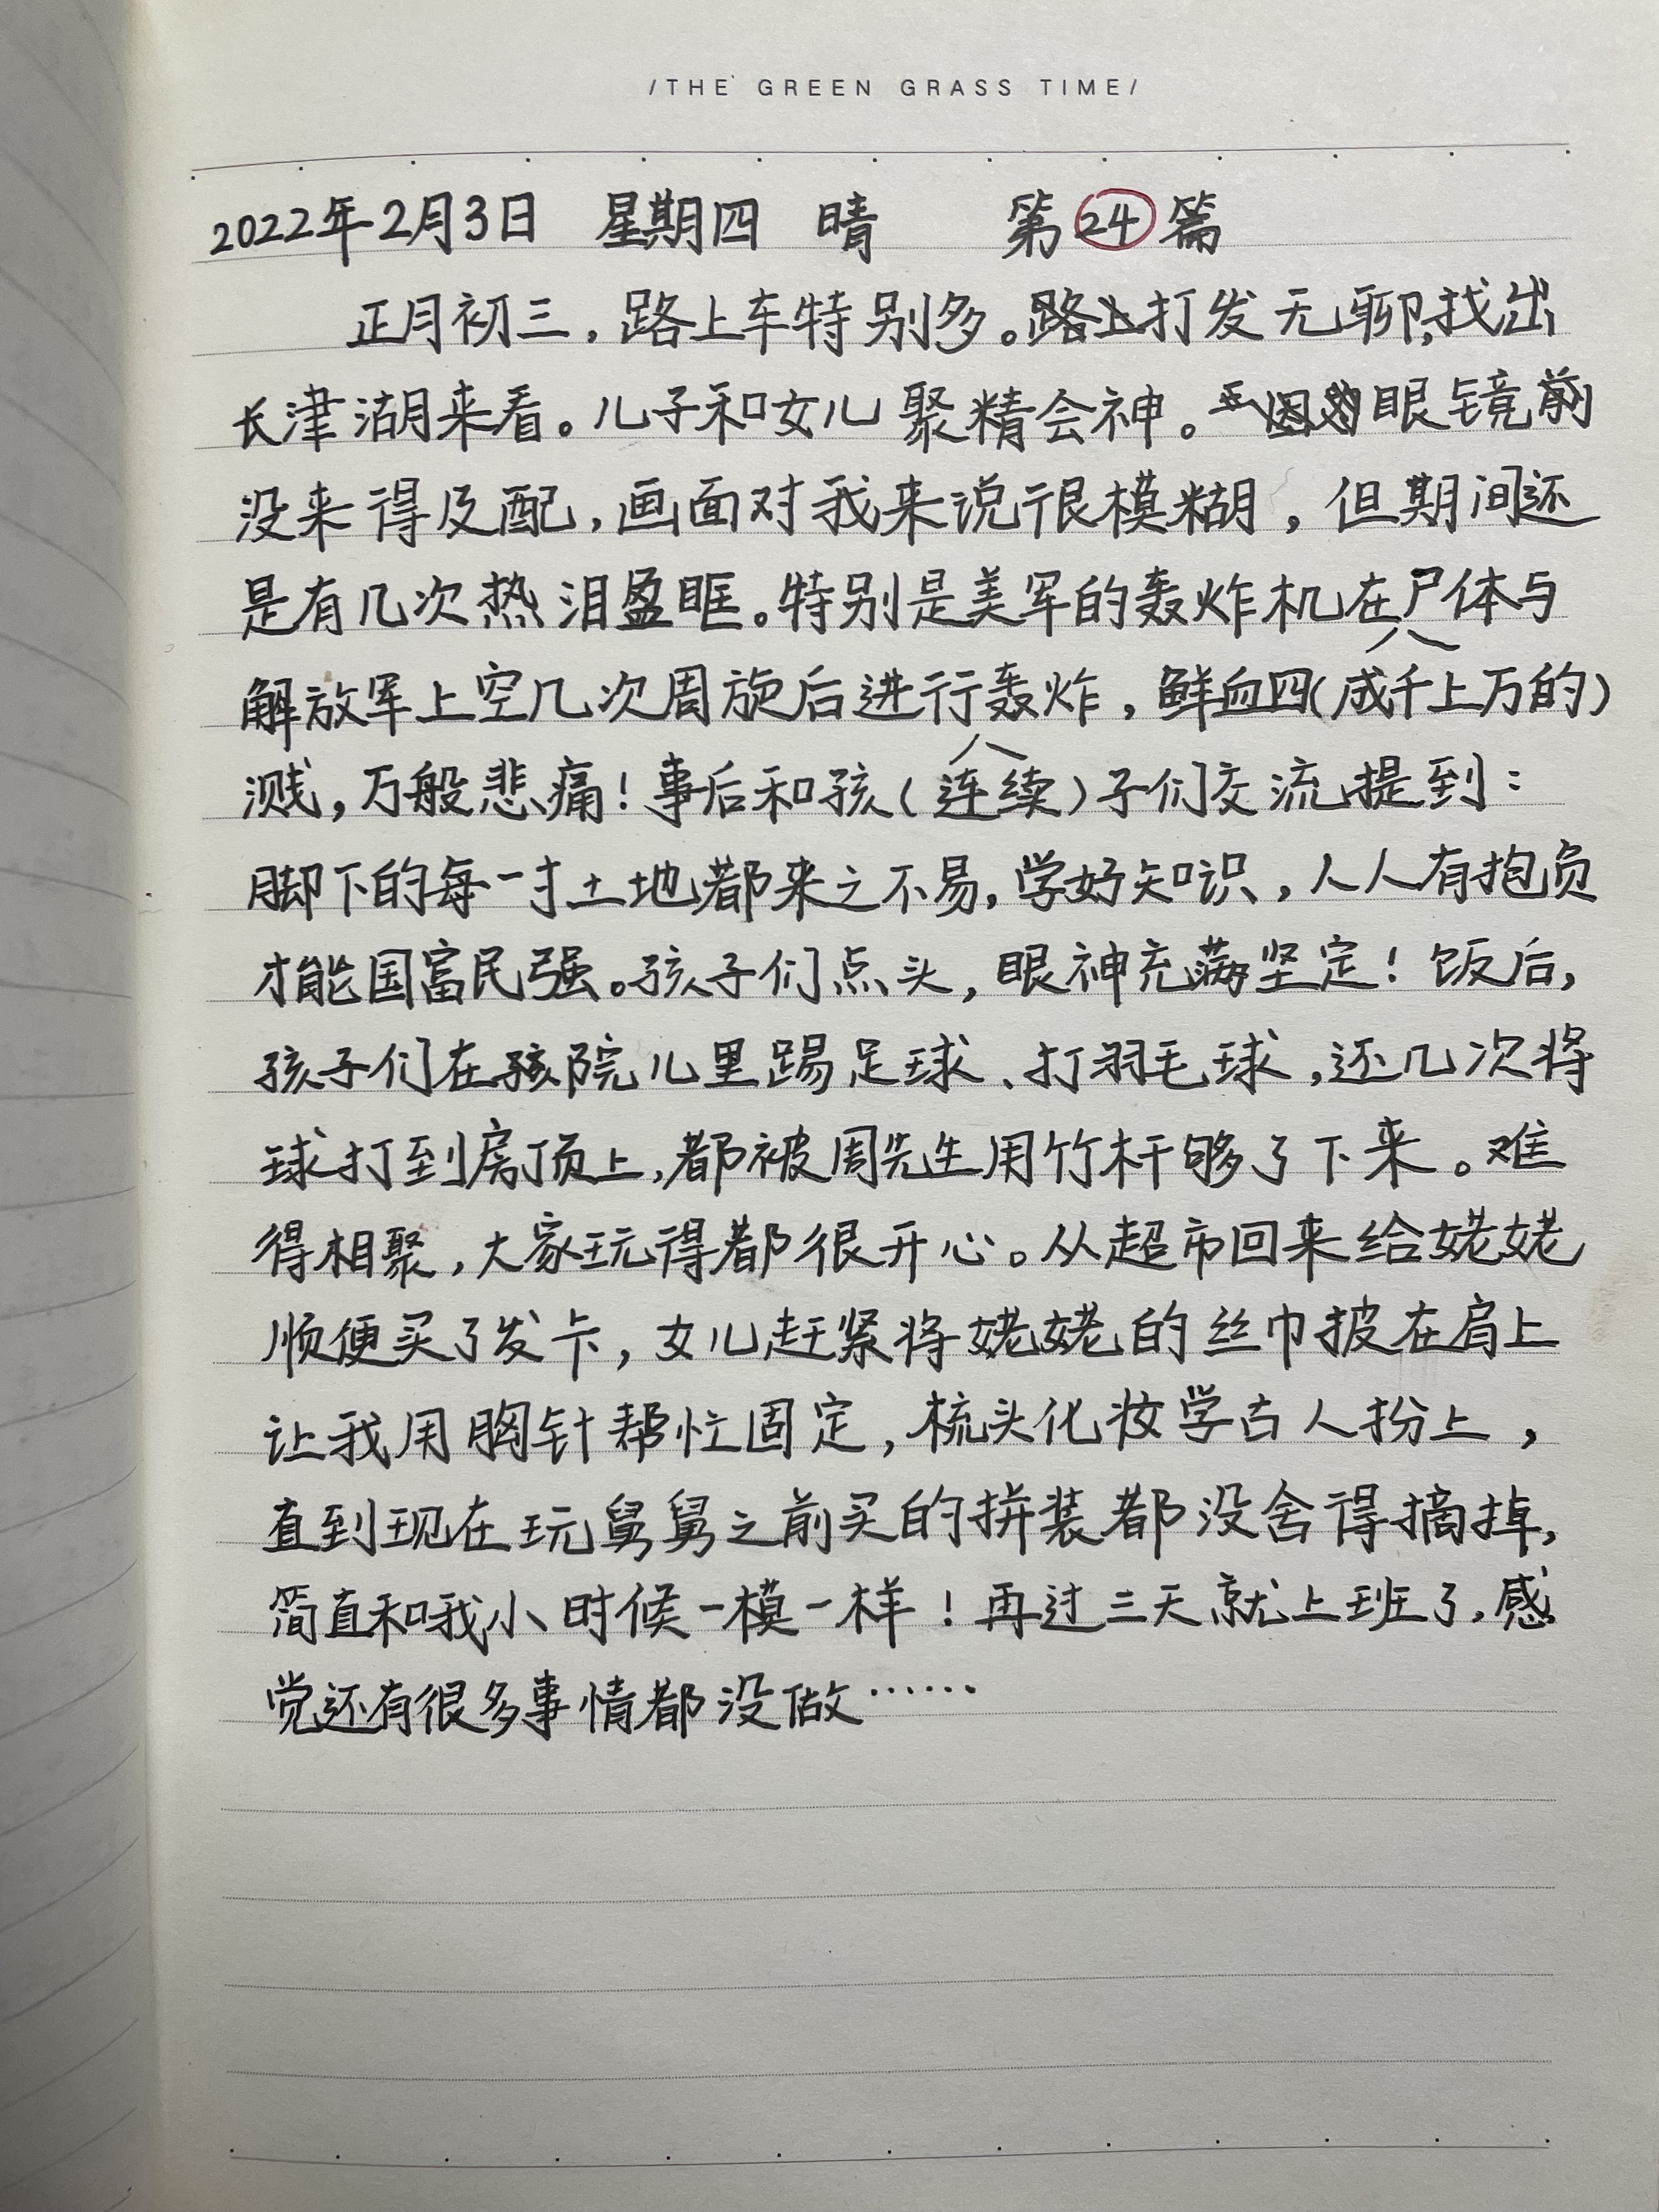 /THE GREEN GRASS TIME/
2022年2月3日 星期四 晴 第24篇
正月初三，路上车特别多。路上打发无聊，找出
长津湖来看。儿子和女儿聚精会神。眼镜前
没来得及配，画面对我来说很模糊，但期间还
是有几次热泪盈眶。特别是美军的轰炸机在尸体与
解放军上空几次周旋后进行轰炸，鲜血四(成千上万的)
溅，万般悲痛！事后和孩(连续)子们交流提到：
脚下的每一寸土地都来之不易，学好知识，人人有抱负
才能国富民强。孩子们点头，眼神充满坚定！饭后，
孩子们在院儿里踢足球、打羽毛球，还几次将
球打到房顶上，都被周先生用竹杆够了下来。难
得相聚，大家玩得都很开心。从超市回来给姥姥
顺便买了发卡，女儿赶紧将姥姥的丝巾披在肩上
让我用胸针帮忙固定，梳头化妆学古人扮上，
直到现在玩舅舅之前买的拼装都没舍得摘掉，
简直和我小时候一模一样！再过三天就上班了，感
觉还有很多事情都没做……